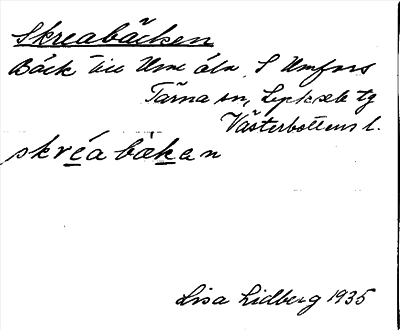 Skreabäcken
Bäck till Ume älv, S Umfors
Tärna sn, Lycksele tg
Västerbottens l.
skréabäkan
Lisa Lidberg 1935